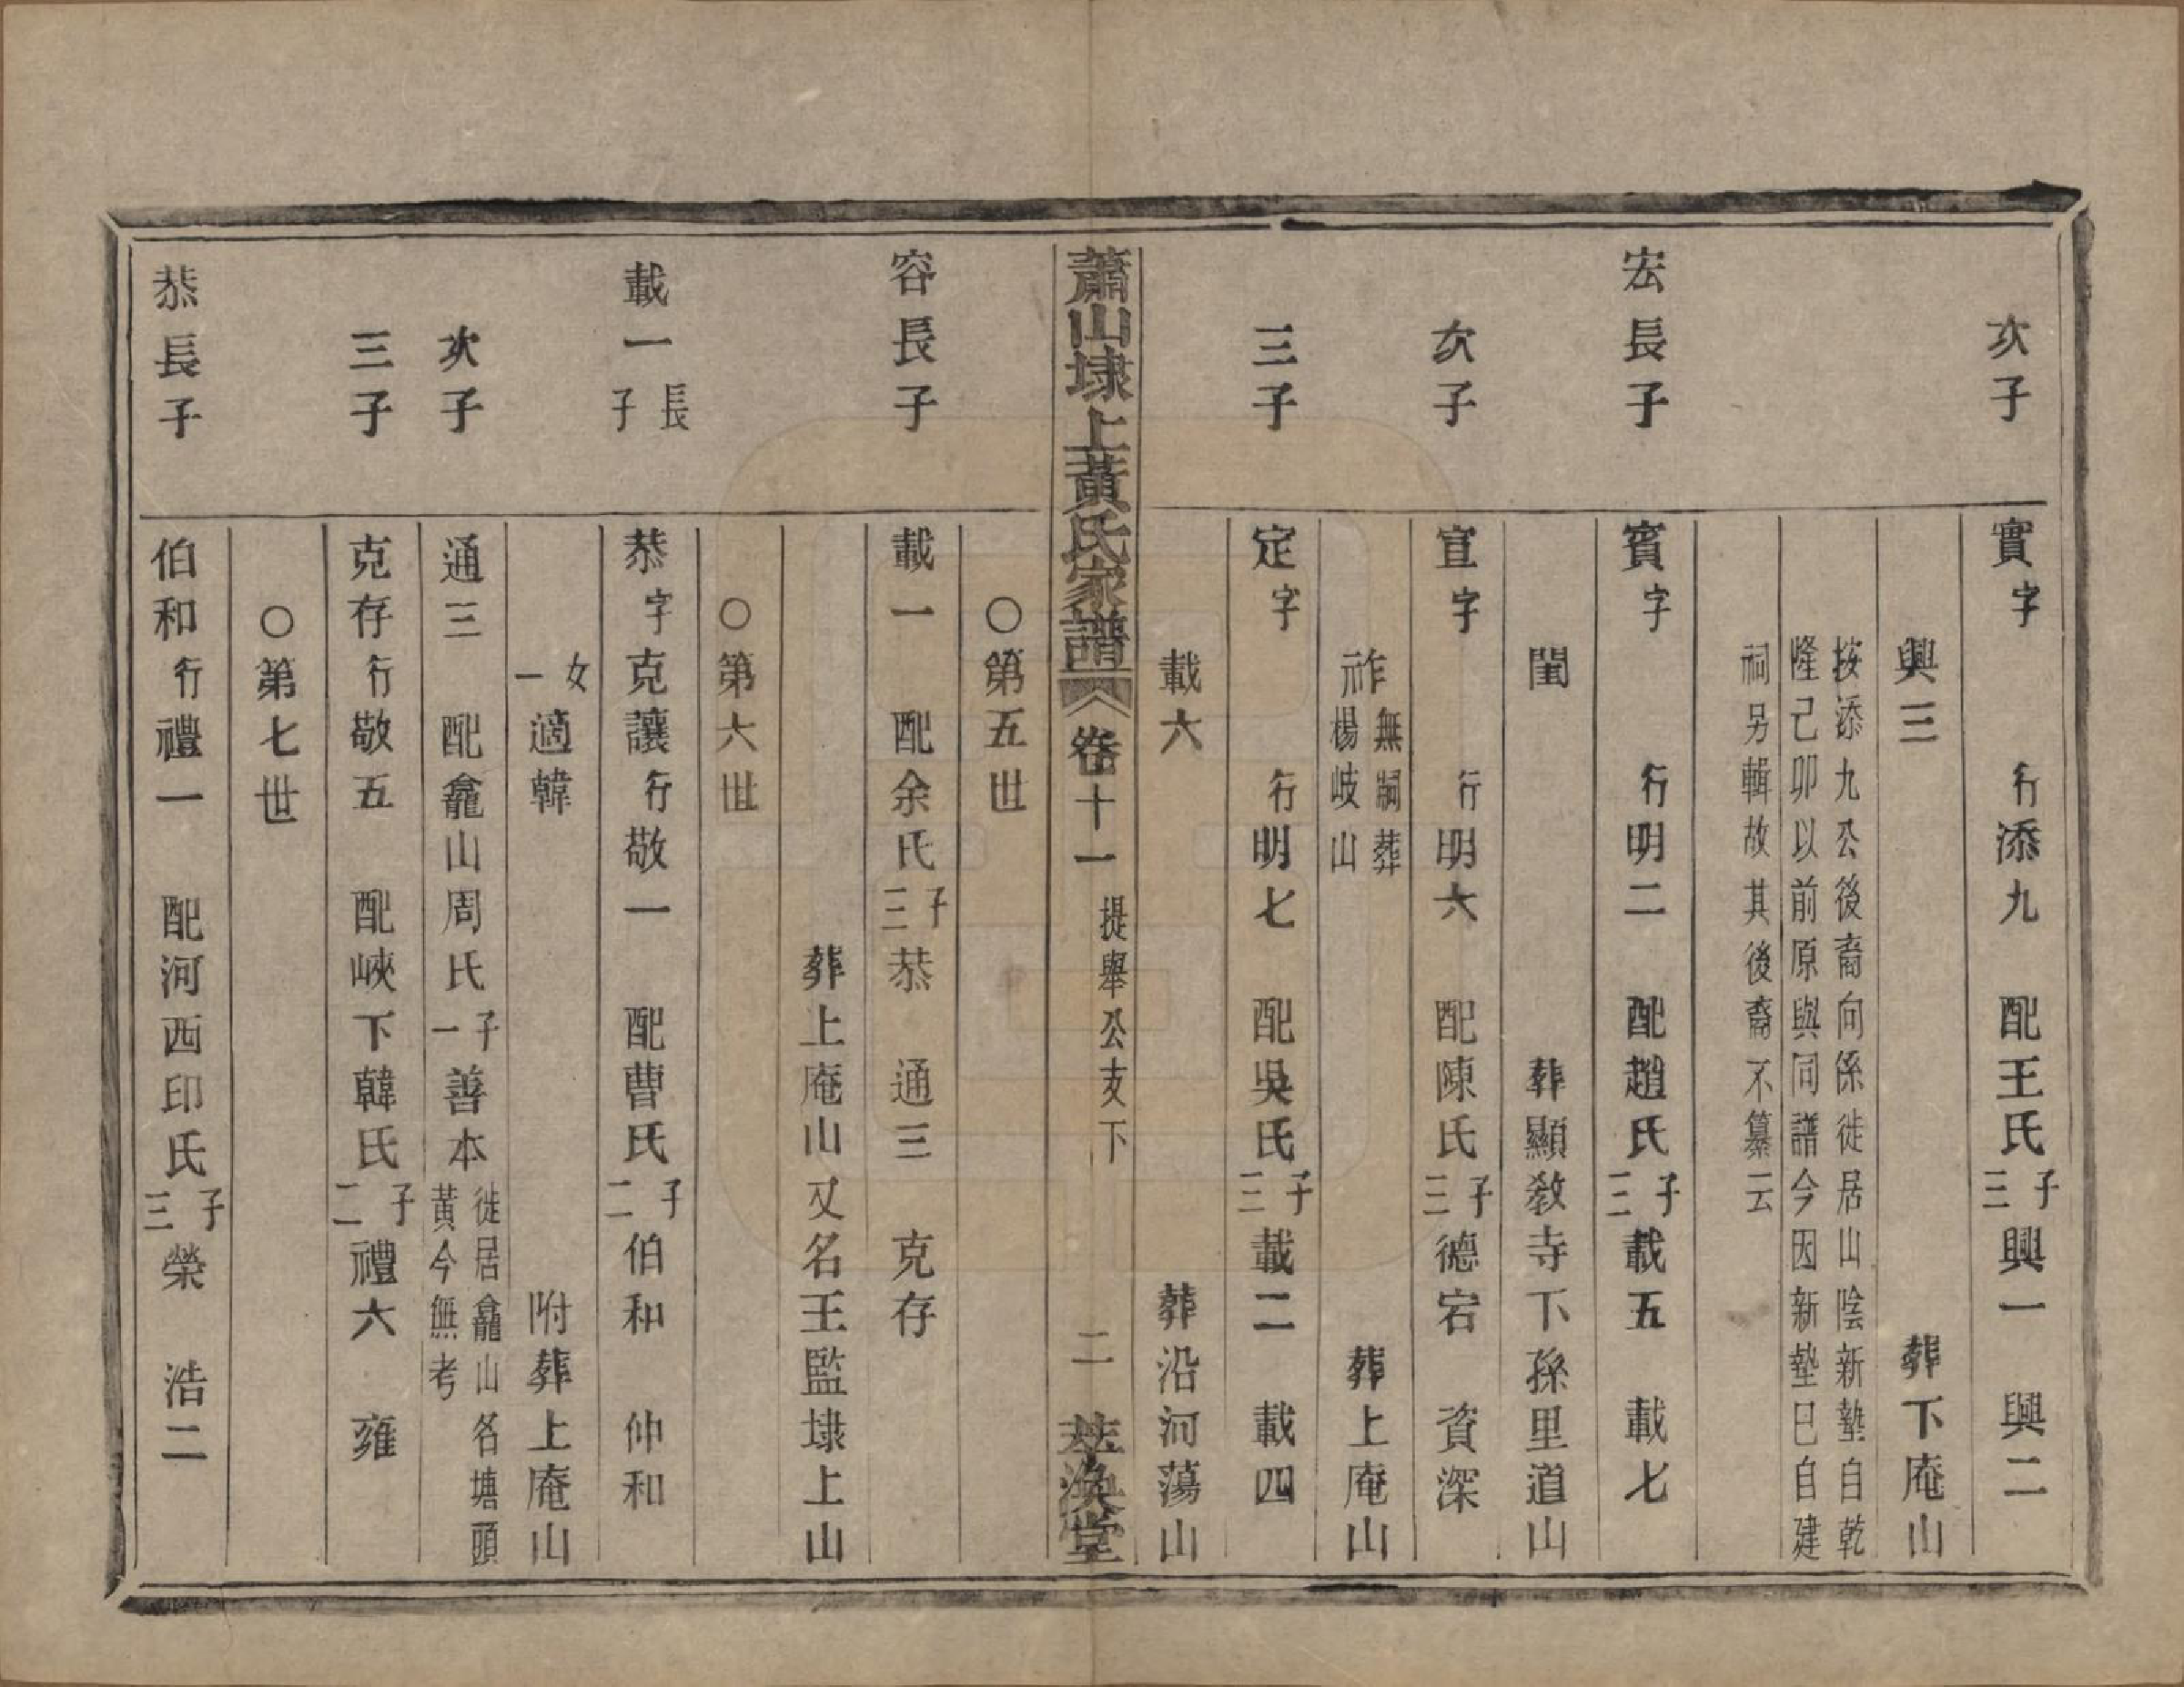 次子　實字　行添九　配王氏子三興一　興二
興三　葬下庵山
按添九公後裔向係徙居山陰新墊自乾
隆己卯以前原與同譜今因新墊已自建
祠另輯故其後裔不纂云
宏長子　賓字　行明二　配趙氏子三載五　載七
閏　葬顯教寺下孫里道山
次子　宣字　行明六　配陳氏子三德宕　資深
祚無嗣葬楊岐山　葬上庵山
三子　定字　行明七　配吳氏子三載二　載四
載六　葬沿河蕩山
蕭山埭上黃氏家譜　卷十一　提舉公支下　二　萃渙堂
○第五世
容長子　載一　配余氏子三恭　通三　克存
葬上庵山又名王監埭上山
○第六世
載一長子　恭字克讓行敬一　配曹氏子二伯和　仲和
女一適韓　附葬上庵山
次子　通三　配龕山周氏子一善本徙居龕山名塘頭黃今無考
三子　克存行敬五　配峽下韓氏子二禮六　雍
○第七世
恭長子　伯和行禮一　配河西印氏子三榮　浩二